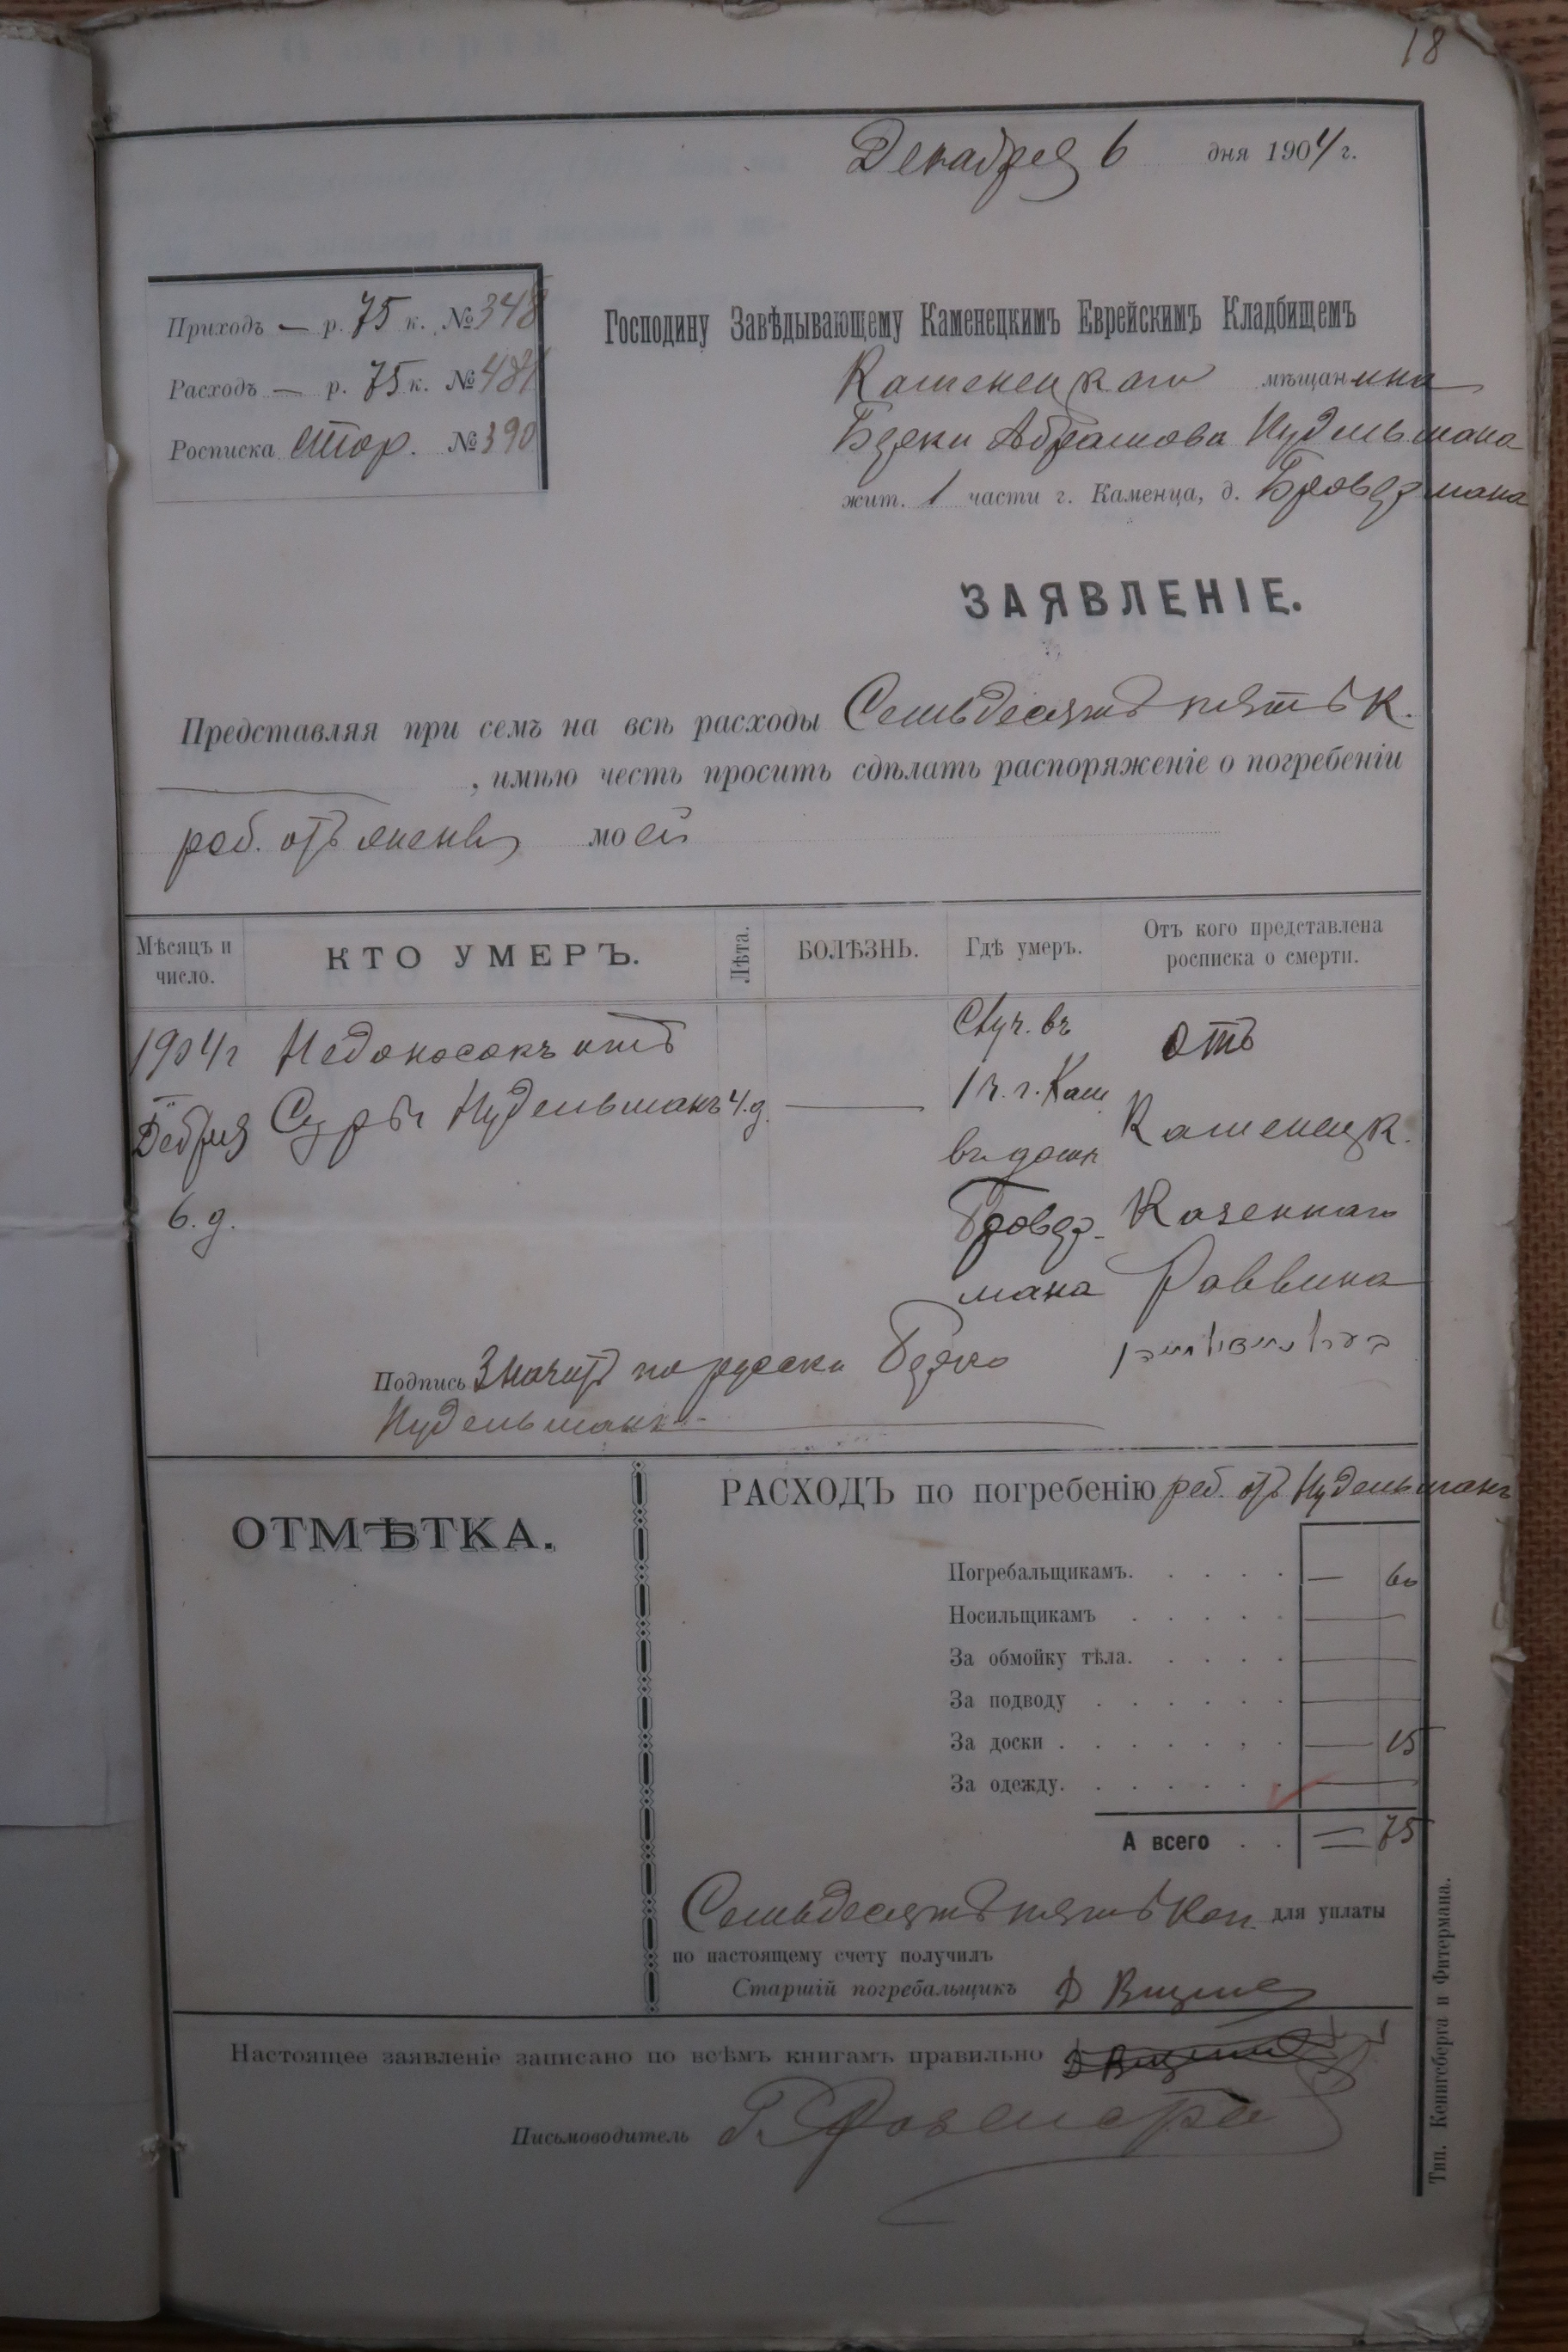 18
Декабря 6 дня 1904 г.
Приходъ — р. 75 к. № 348
Расходъ — р. 75 к. №
Росписка стор. № 390
Господину Завѣдывающему Каменецкимъ Еврейскимъ Кладбищемъ
Каменецкаго мѣщанина
Берки Абрамова Нудельмана
жит. 1 части г. Каменца, д. Бровермана
ЗАЯВЛЕНІЕ.
Представляя при семъ на всѣ расходы Семьдесятъ пять К.
, имѣю честь просить сдѣлать распоряженіе о погребеніи
реб. отъ жены моей
Мѣсяцъ и число.
КТО УМЕРЪ.
Лѣта.
БОЛѢЗНЬ.
Гдѣ умеръ.
Отъ кого представлена росписка о смерти.
1904 г Недоносокъ отъ Случ. въ отъ
Суры Нудельманъ 4.д. — 1 ч. г. Кам. Каменецк.
6. д. въ домѣ
Бровер- Казеннаго
мана Раввина
Подпись Значитъ по русски Берко
Нудельманъ —
ОТМѢТКА.
РАСХОДЪ по погребенію реб. отъ Нудельманъ
Погребальщикамъ. . . . . — 60
Носильщикамъ . . . . . —
За обмойку тѣла. . . . . —
За подводу . . . . . . —
За доски . . . . . . . — 15
За одежду. . . . . . —
А всего . . = 75
Семьдесятъ пять коп для уплаты
по настоящему счету получилъ
Старшій погребальщикъ Д
Настоящее заявленіе записано по всѣмъ книгамъ правильно
Письмоводитель Г.
Тип. Кенигсберга и Фитермана.